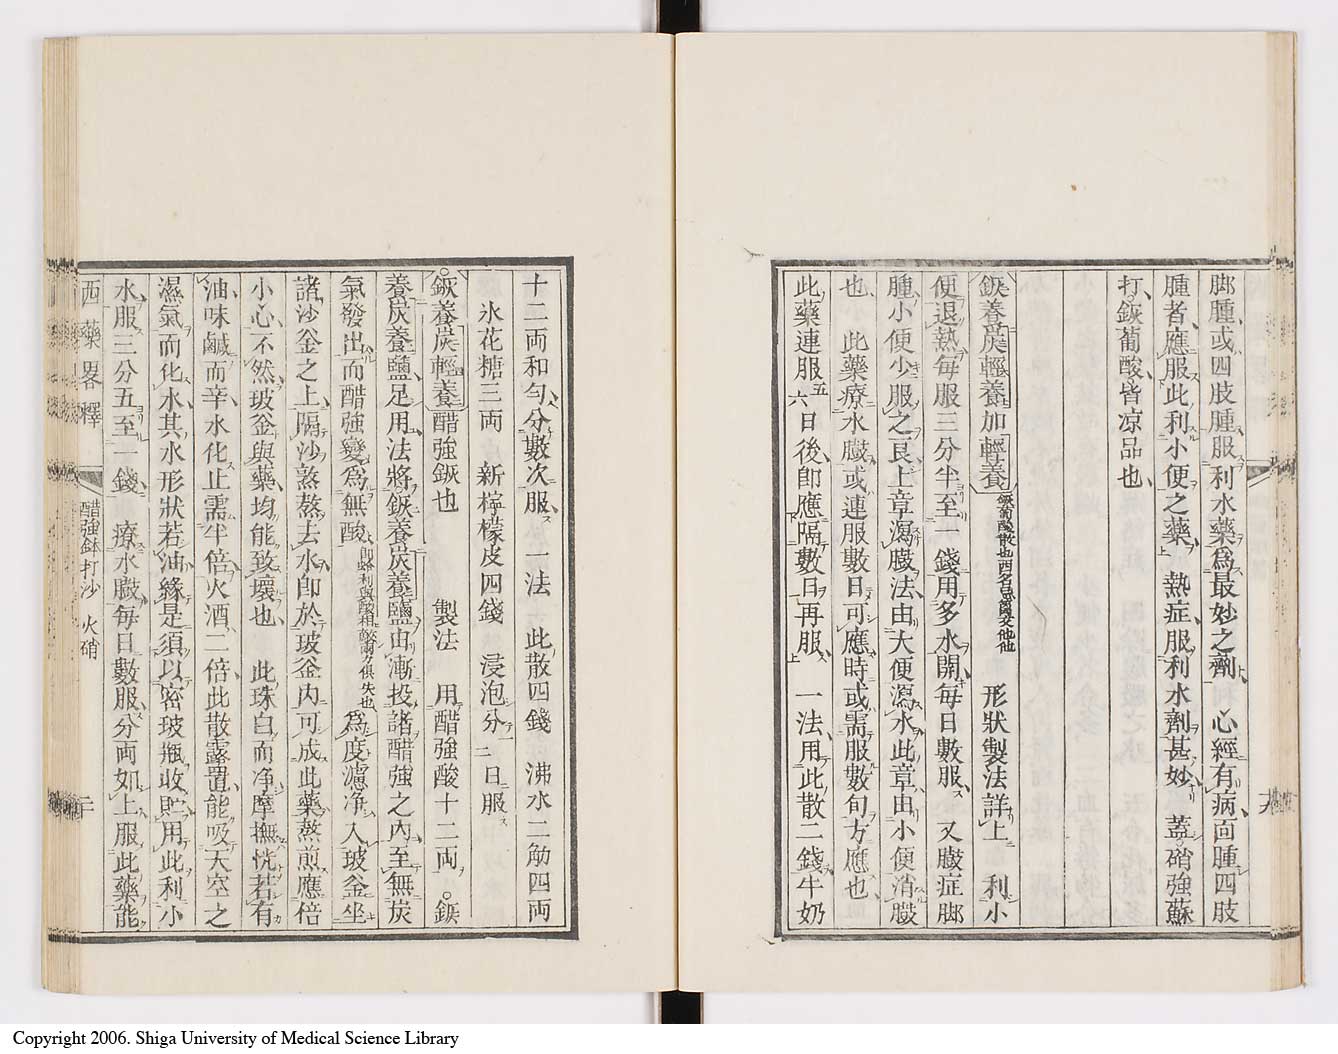 脚腫或四肢腫服利水藥爲最妙之劑 心經有病面腫四肢
腫者應服此利小便之藥 熱症服利水劑甚妙 蓋硝強蘇
打鋠葡酸皆凉品也
鋠養炭輕養加輕養 形狀製法詳上 利小
便退熱每服三分半至一錢用多水開每日數服 又臌症脚
腫小便少服之良上章瀉臌法由大便瀉水此章由小便消臌
也 此藥療水臌或連服數日可應時或需服數旬方應也
此藥連服五六日後即應隔數日再服 一法用此散二錢牛奶
九
十二両和勻分數次服 一法 此散四錢 沸水二觔四両
氷花糖三両 新檸檬皮四錢 浸泡分二日服
鋠養炭輕養醋強鋠也 製法 用醋強酸十二両 鋠
養炭養鹽足用法將鋠養炭養鹽由漸投諸醋強之內至無炭
氣發出而醋強變爲無酸 爲度濾净入玻釜坐
諸沙釜之上隔沙熬熬去水即於玻釜內可成此藥熬煎應倍
小心不然玻釜與藥均能致壞也 此珠白而净摩撫恍若有
油味鹹而辛水化止需半倍火酒二倍此散露置能吸天空之
濕氣而化水其水形狀若油緣是須以密玻瓶收貯用此利小
水服三分五至一錢 療水臌每日數服分両如上服此藥能
西藥畧釋 醋強鉢打沙 火硝